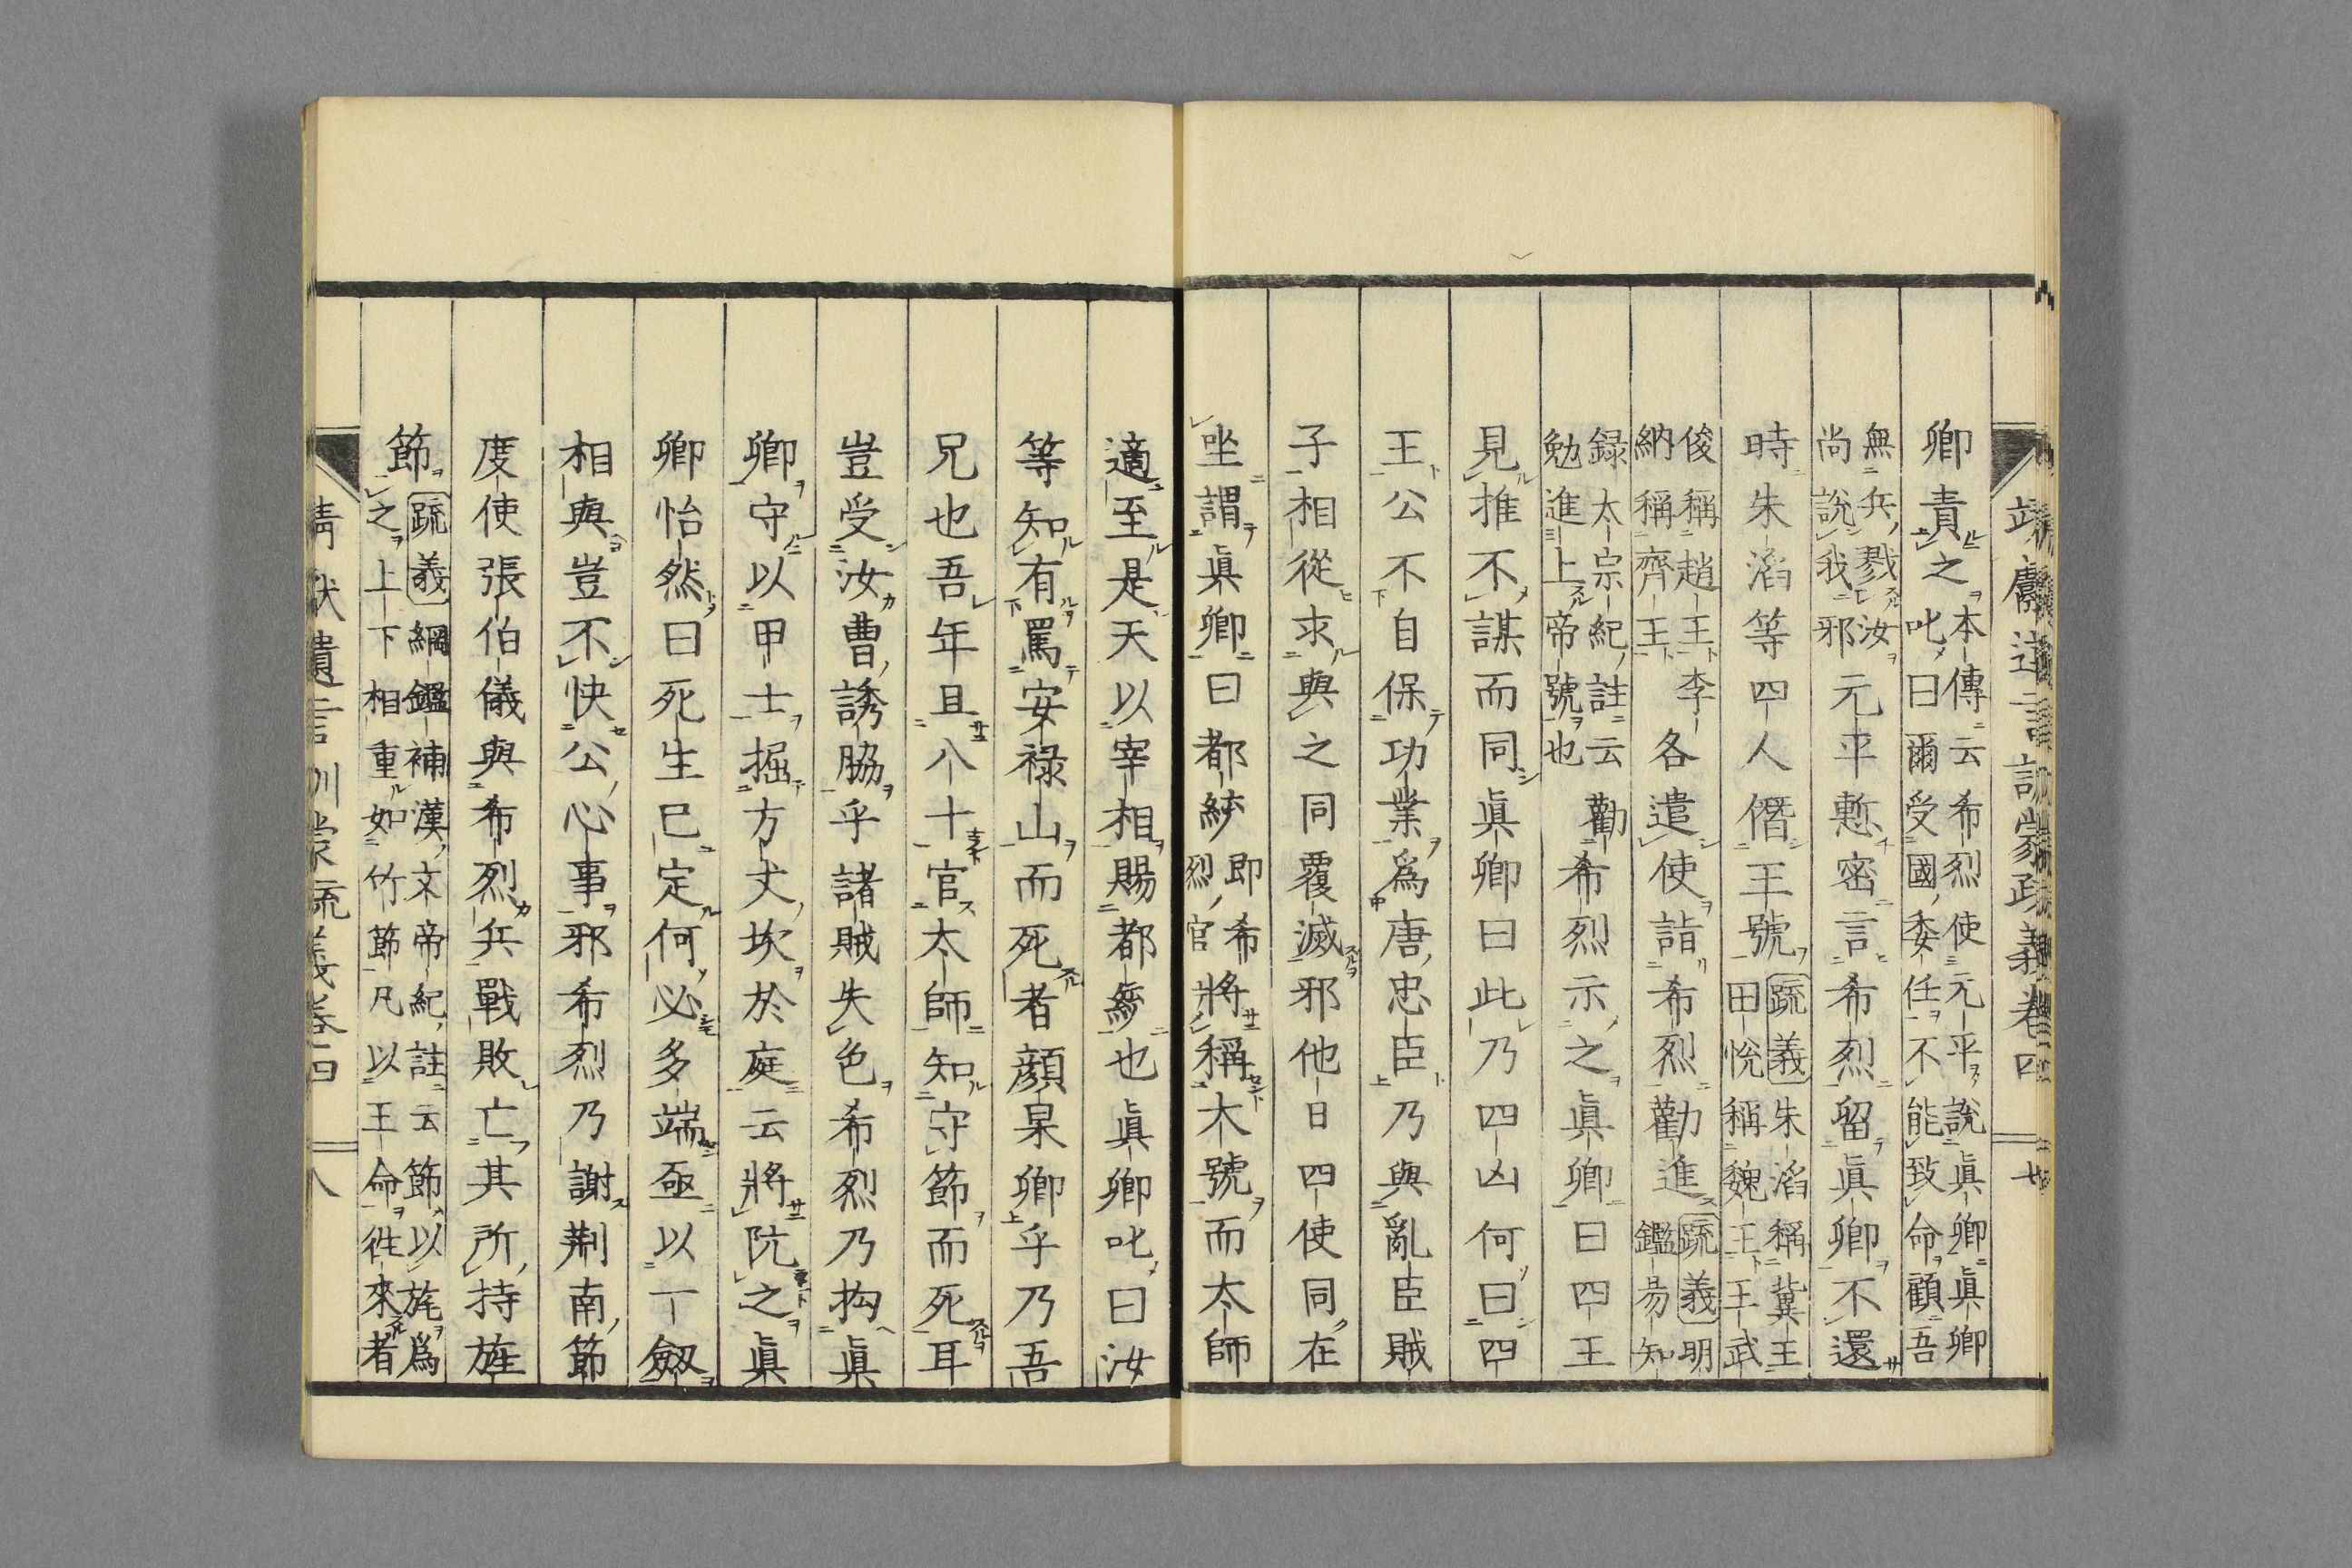 靖獻遺言訓蒙疏義卷四 七
卿責之本傳云希烈使元平說眞卿眞卿叱曰爾受國委任不能致命顧吾
無兵戮汝尚說我邪元平慙密言希烈留眞卿不還
時朱滔等四人僭王號疏義朱滔稱冀王田悅稱魏王王武
俊稱趙王李納稱齊王各遣使詣希烈勸進疏義明鑑易知
録太宗紀註云勸勉進上帝號也希烈示之眞卿曰四王
見推不謀而同眞卿曰此乃四凶何曰四
王公不自保功業爲唐忠臣乃與亂臣賊
子相從求與之同覆滅邪他日四使同在
坐謂眞卿曰都統即希烈官將稱大號而太師
適至是天以宰相賜都統也眞卿叱曰汝
等知有罵安祿山而死者顏杲卿乎乃吾
兄也吾年且八十官太師知守節而死耳
豈受汝曹誘脇乎諸賊失色希烈乃拘眞
卿守以甲士掘方丈坎於庭云將阬之眞
卿怡然曰死生已定何必多端亟以一劔
相與豈不快公心事邪希烈乃謝荆南節
度使張伯儀與希烈兵戰敗亡其所持旌
節疏義綱鑑補漢文帝紀註云節以旄爲之上下相重如竹節凡以王命徃來者
靖獻遺言訓蒙疏義卷四 八